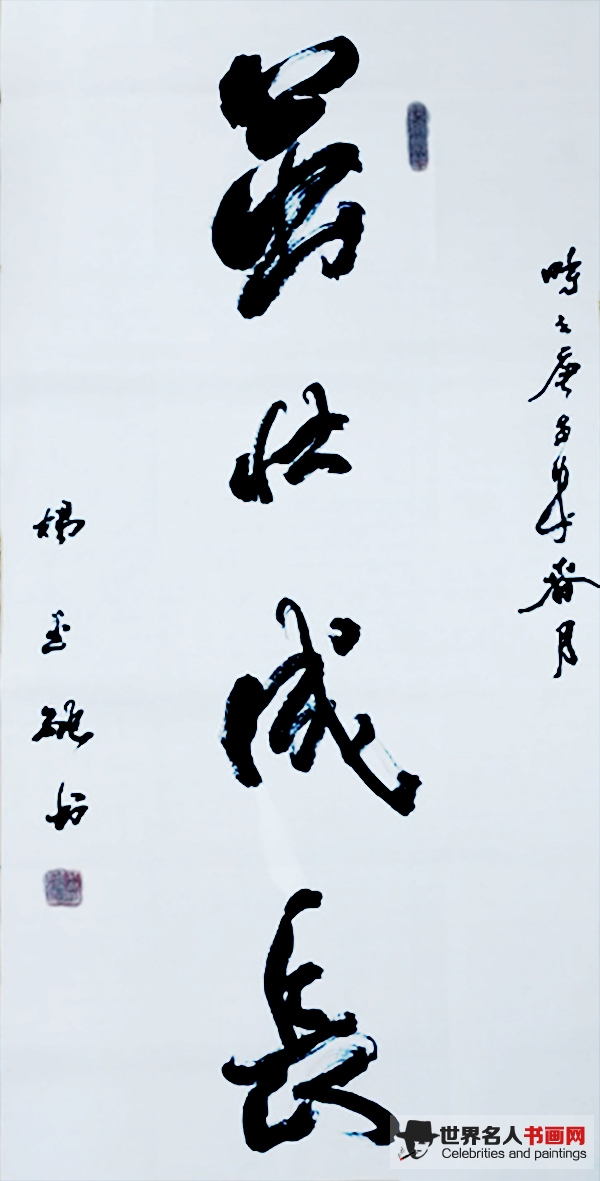 時在庚子年春月
茁壮成長
楊书
世界名人书画网
Celebrities and paintings